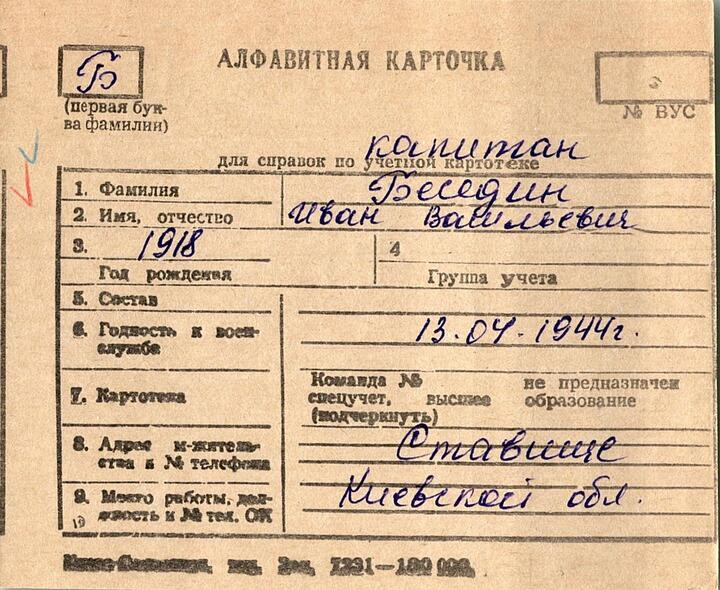 АЛФАВИТНАЯ КАРТОЧКА
Б
(первая бук-
ва фамилии)
№ ВУС
капитан
для справок по учетной картотеке
1. Фамилия Беседин
2. Имя, отчество Иван Васильевич
3. 1918 4
Год рождения Группа учета
5. Состав
6. Годность к воен-
службе
13.04.1944г.
7. Картотека
Команда № не предназначен
спецучет, высшее образование
(подчеркнуть)
8. Адрес м-житель-
ства и № телефона
Ставище
9. Место работы, дол-
жность и № тел. ОК
Киевской обл.
зак. 7231—180 000.